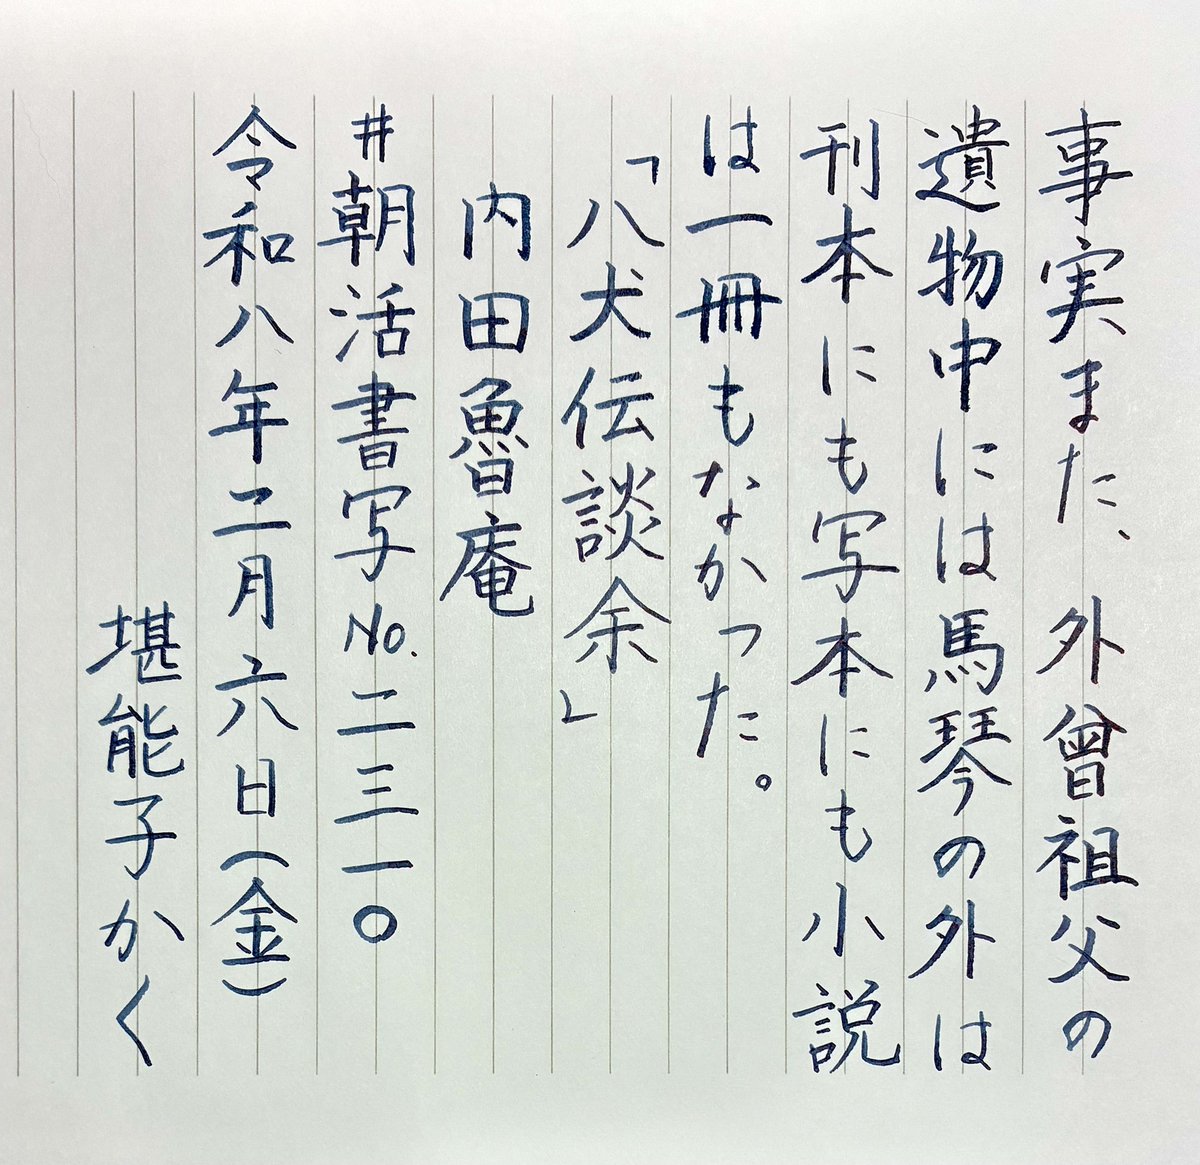 事実また、外曾祖父の
遺物中には馬琴の外は
刊本にも写本にも小説
は一冊もなかった。
「八犬伝談余」
内田魯庵
#朝活書写No.二三一〇
令和八年二月六日(金)
堪能子かく